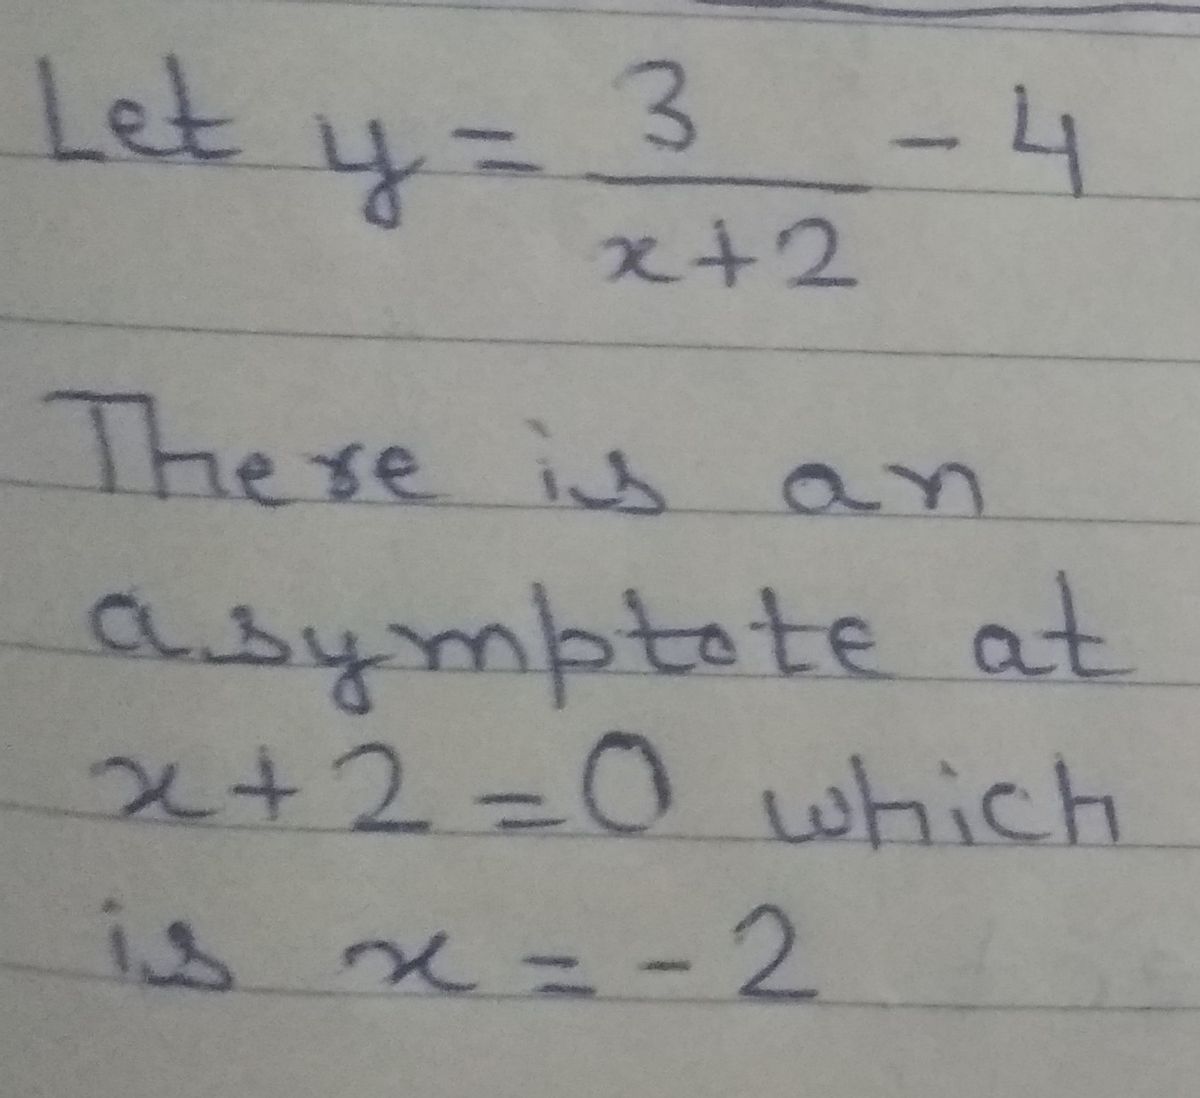 Let y = 3/(x+2) - 4
There is an
asymptote at
x+2=0 which
is x = -2